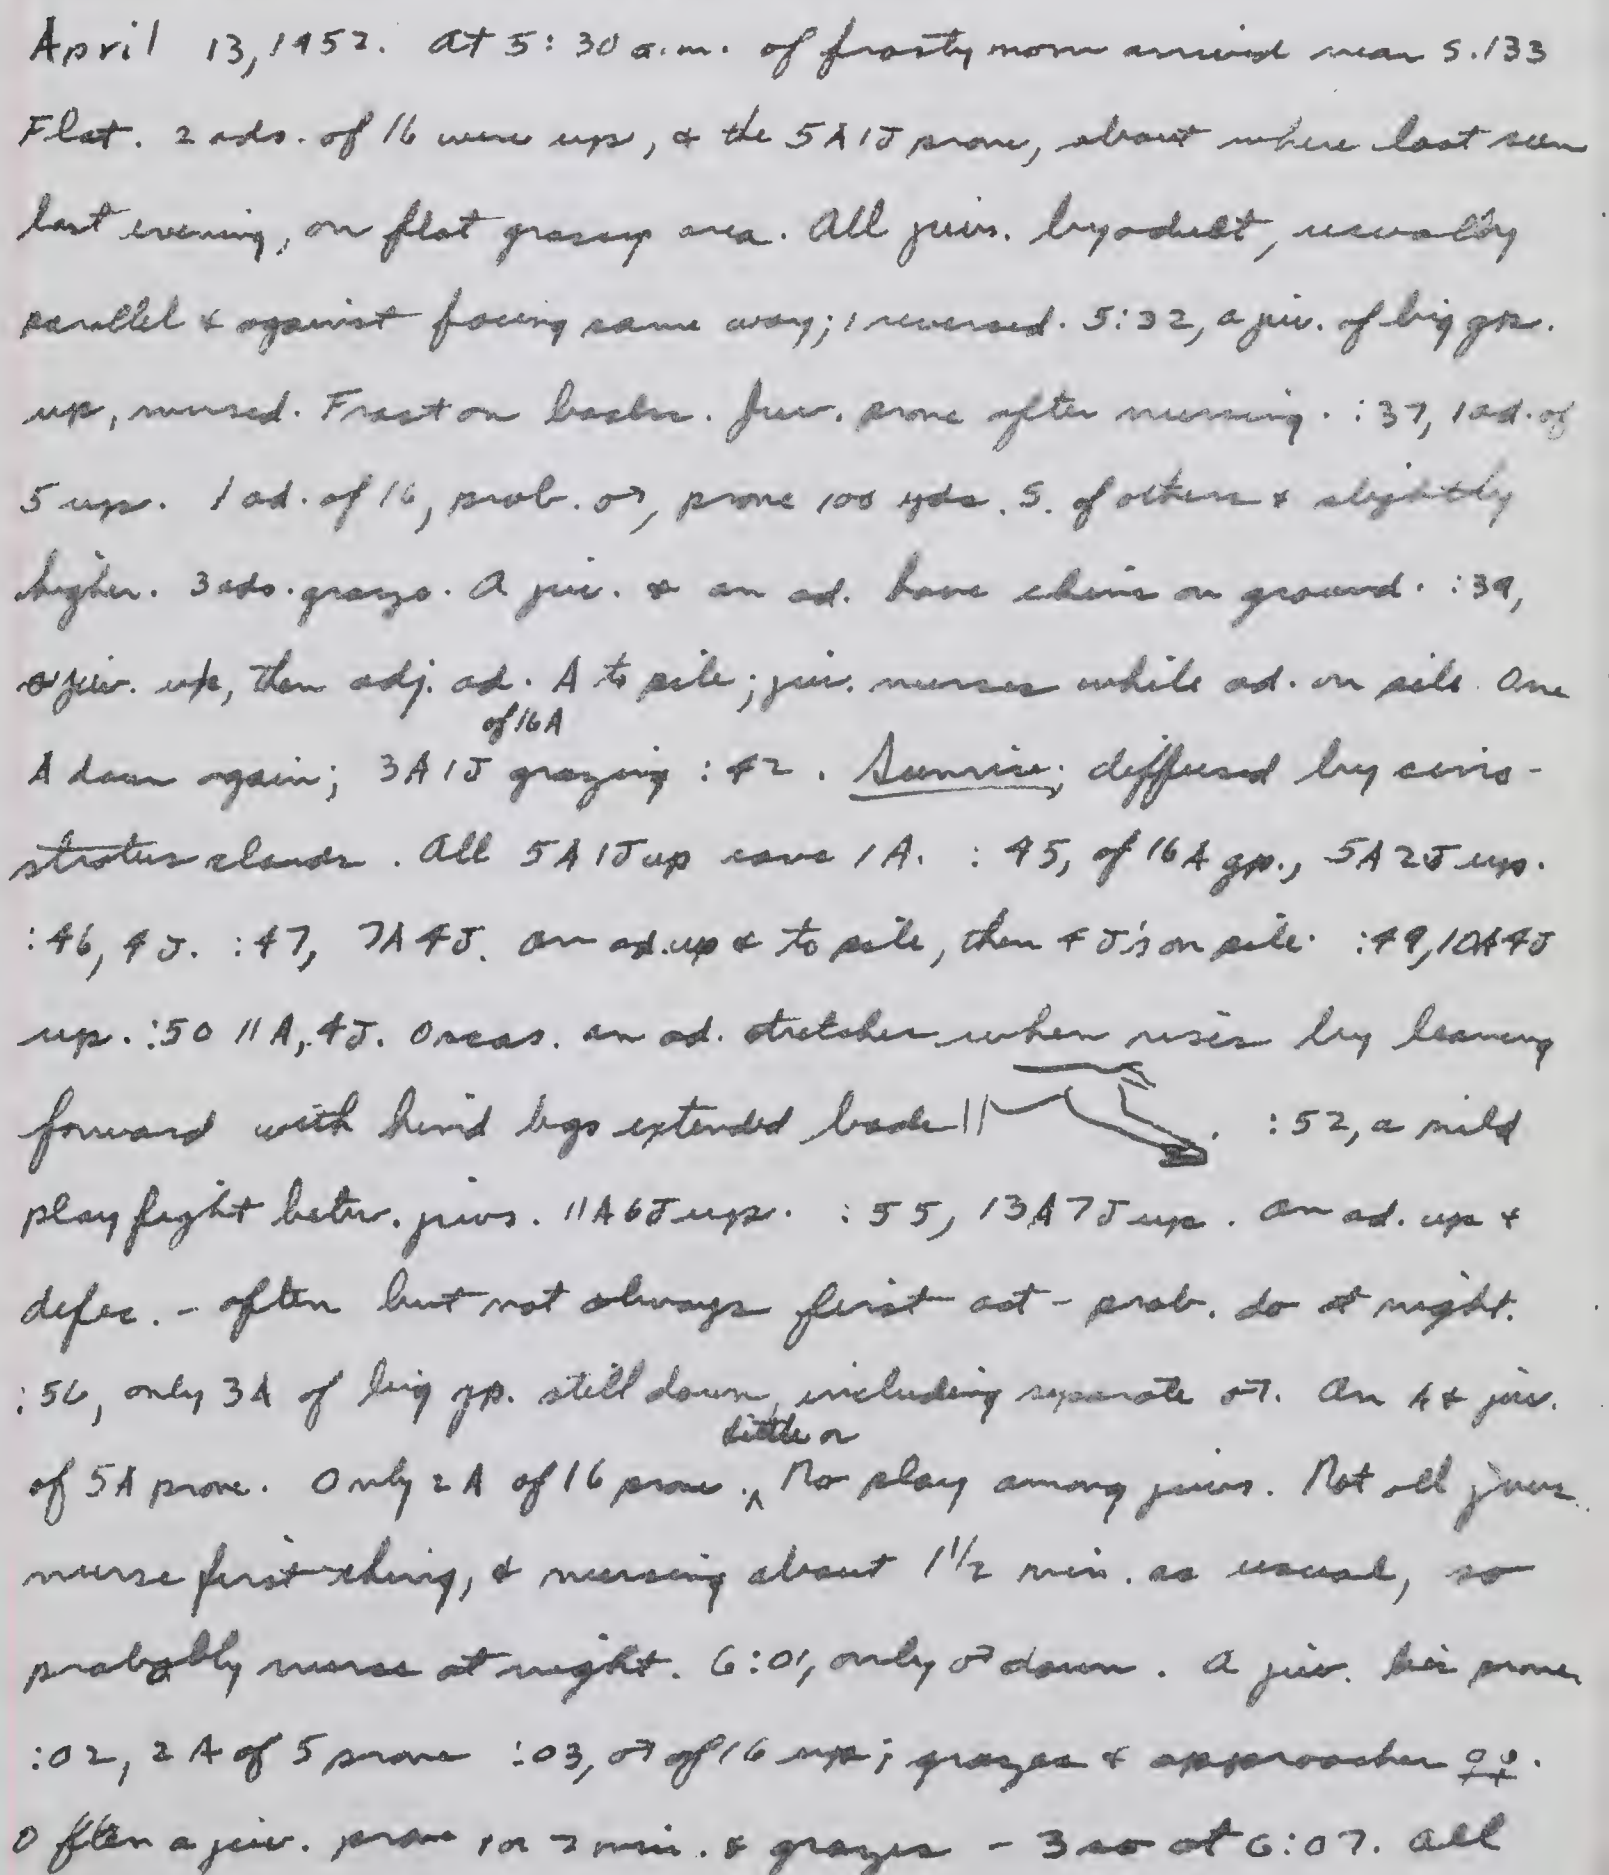 April 13, 1952. At 5:30 a.m. of frosty morn arrived near S.133
Flat. 2 ads. of 16 were up, & the 5A1J prone, about where last seen
last evening, on flat grassy area. All juvs. by adult, usually
parallel & against facing same way; 1 reversed. 5:32, a juv. of big gp.
up, nursed. Frost on backs. Juv. prone after nursing. :37, 1 ad. of
5 up. 1 ad. of 16, prob. ♂, prone 100 yds. S. of others & slightly
higher. 3 ads. graze. A juv. & an ad. have chins on ground. :39,
a juv. up, then adj. ad. A to pile; juv. nurses while ad. on pile. One
of 16A
A down again; 3A1J grazing :42. Sunrise; diffused by cirro-
stratus clouds. All 5A1J up save 1A. :45, of 16A gp., 5A2J up.
:46, 4J. :47, 7A4J. An ad. up & to pile, then 4 J's on pile. :49, 10A4J
up. :50 11A, 4J. Occas. an ad. stretches when rises by leaning
forward with hind legs extended back. :52, a mild
play fight betw. juvs. 11A6J up. :55, 13A7J up. An ad. up &
defec. - often but not always first act - prob. do at night.
:56, only 3A of big gp. still down, including separate ♂. An A & juv.
little or
of 5A prone. Only 2A of 16 prone. ^ No play among juvs. Not all juvs.
nurse first thing, & nursing about 1 1/2 min. as usual, so
probably nurse at night. 6:01, only ♂ down. A juv. lies prone
:02, 2A of 5 prone :03, ♂ of 16 up; grazes & approaches ♀♀.
Often a juv. prone 1 or 2 min. & grazes - 3 so at 6:07. All